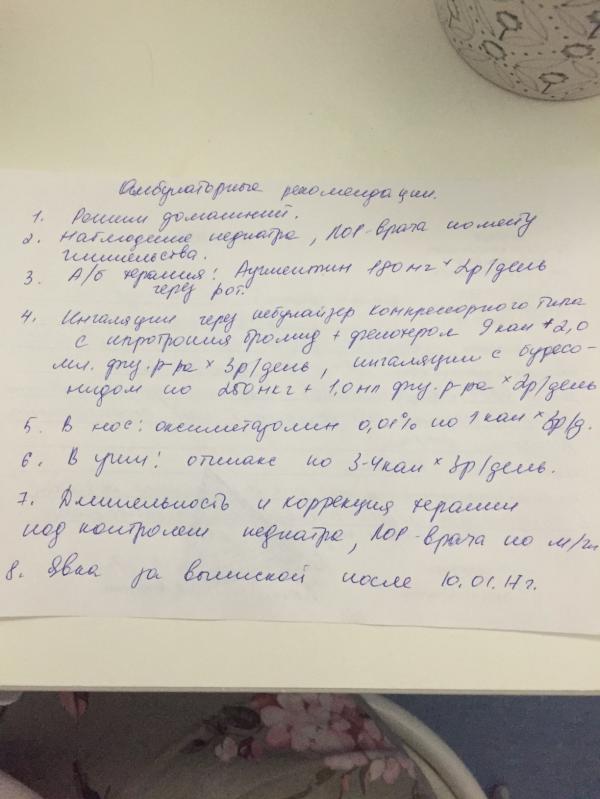 Амбулаторные рекомендации.
1. Режим домашний.
2. Наблюдение педиатра, ЛОР-врача по месту
жительства.
3. А/б терапия: Аугментин 180 мг × 2р/день
через рот.
4. Ингаляции через небулайзер компрессорного типа
с ипратропия бромид + фенотерол 9 кап + 2,0
мл. физ. р-ра × 3р/день, ингаляции с будесо-
нидом по 250 мкг + 1,0 мл физ. р-ра × 2р/день
5. В нос: оксиметазолин 0,01% по 1 кап × 3р/д.
6. В уши: отипакс по 3-4 кап × 3р/день.
7. Длительность и коррекция терапии
под контролем педиатра, ЛОР-врача по м/ж
8. Явка за выпиской после 10.01.17г.